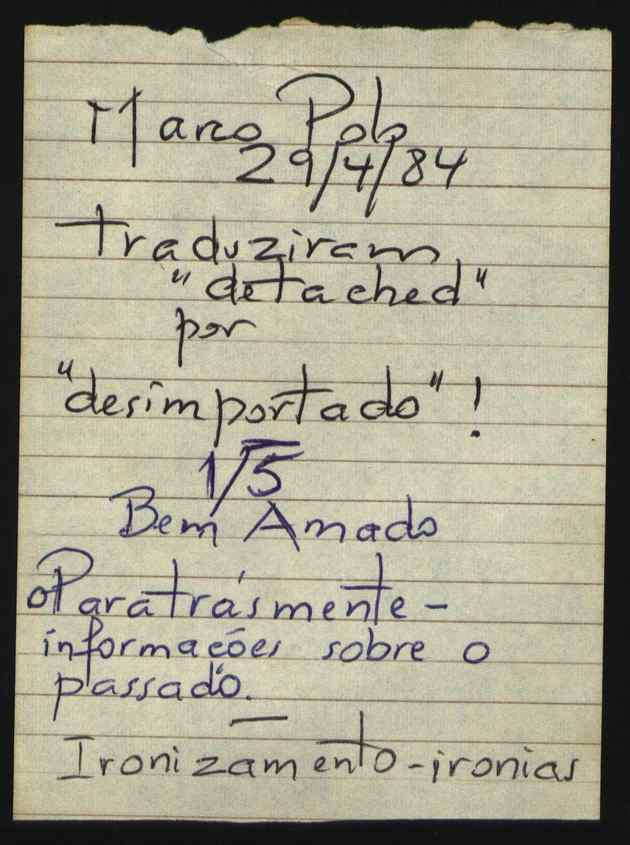 Marco Polo
29/4/84
traduziram
"detached"
por
"desimportado"!
1/5
Bem Amado
Paratrásmente -
informações sobre o
passado.
Ironizamento - ironias